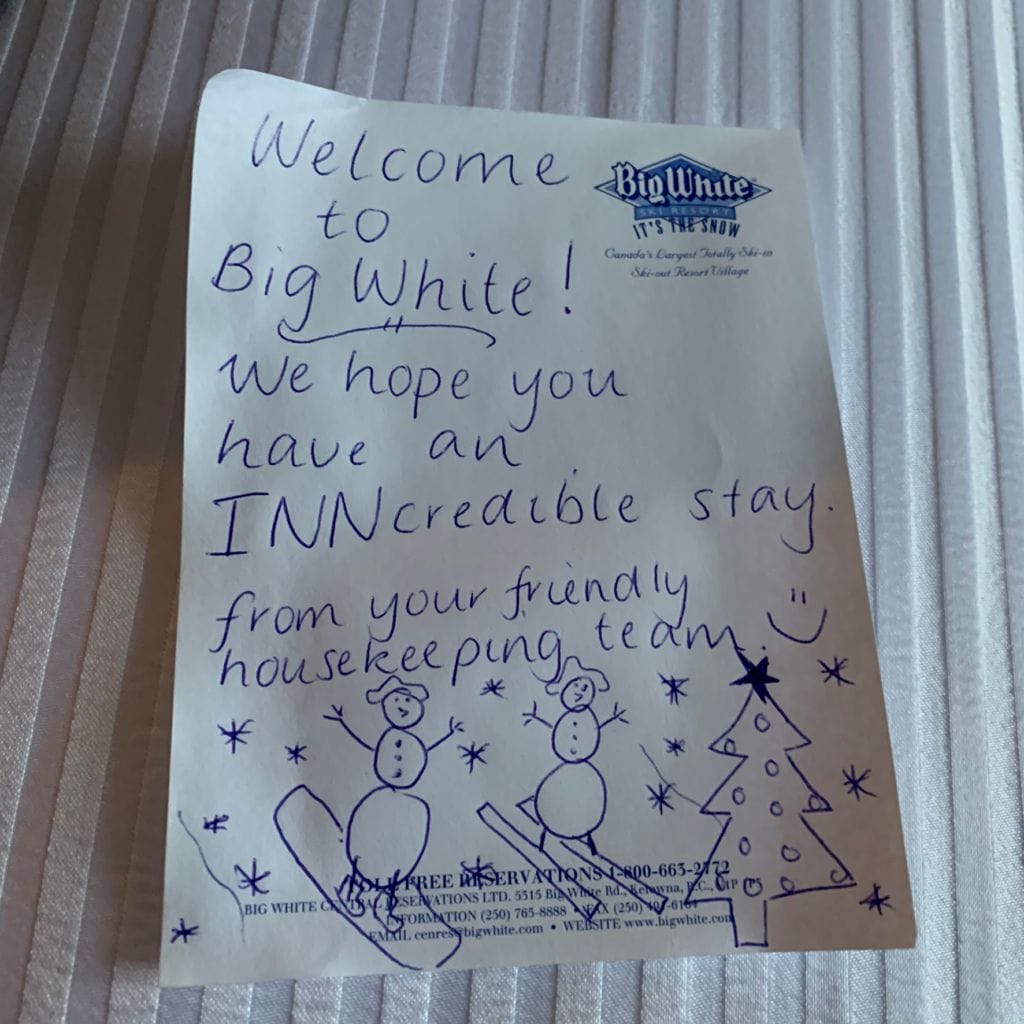 Welcome
to
Big White!
We hope you
have an
INNcredible stay.
from your friendly
housekeeping team.
Big White
SKI RESORT
IT'S THE SNOW
Canada's Largest Totally Ski-in
Ski-out Resort Village
TOLL FREE RESERVATIONS 1-800-663-2772
BIG WHITE CENTRAL RESERVATIONS LTD. 5315 Big White Rd., Kelowna, B.C.,
INFORMATION (250) 765-8888 • FAX (250)
EMAIL cenres@bigwhite.com • WEBSITE www.bigwhite.com